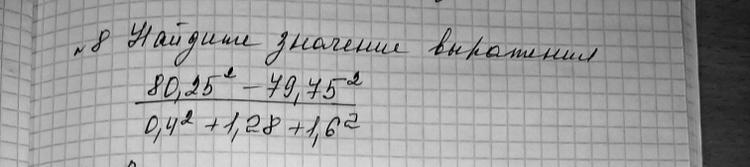 №8 Найдите значение выражения
80,25² − 79,75²
0,4² + 1,28 + 1,6²